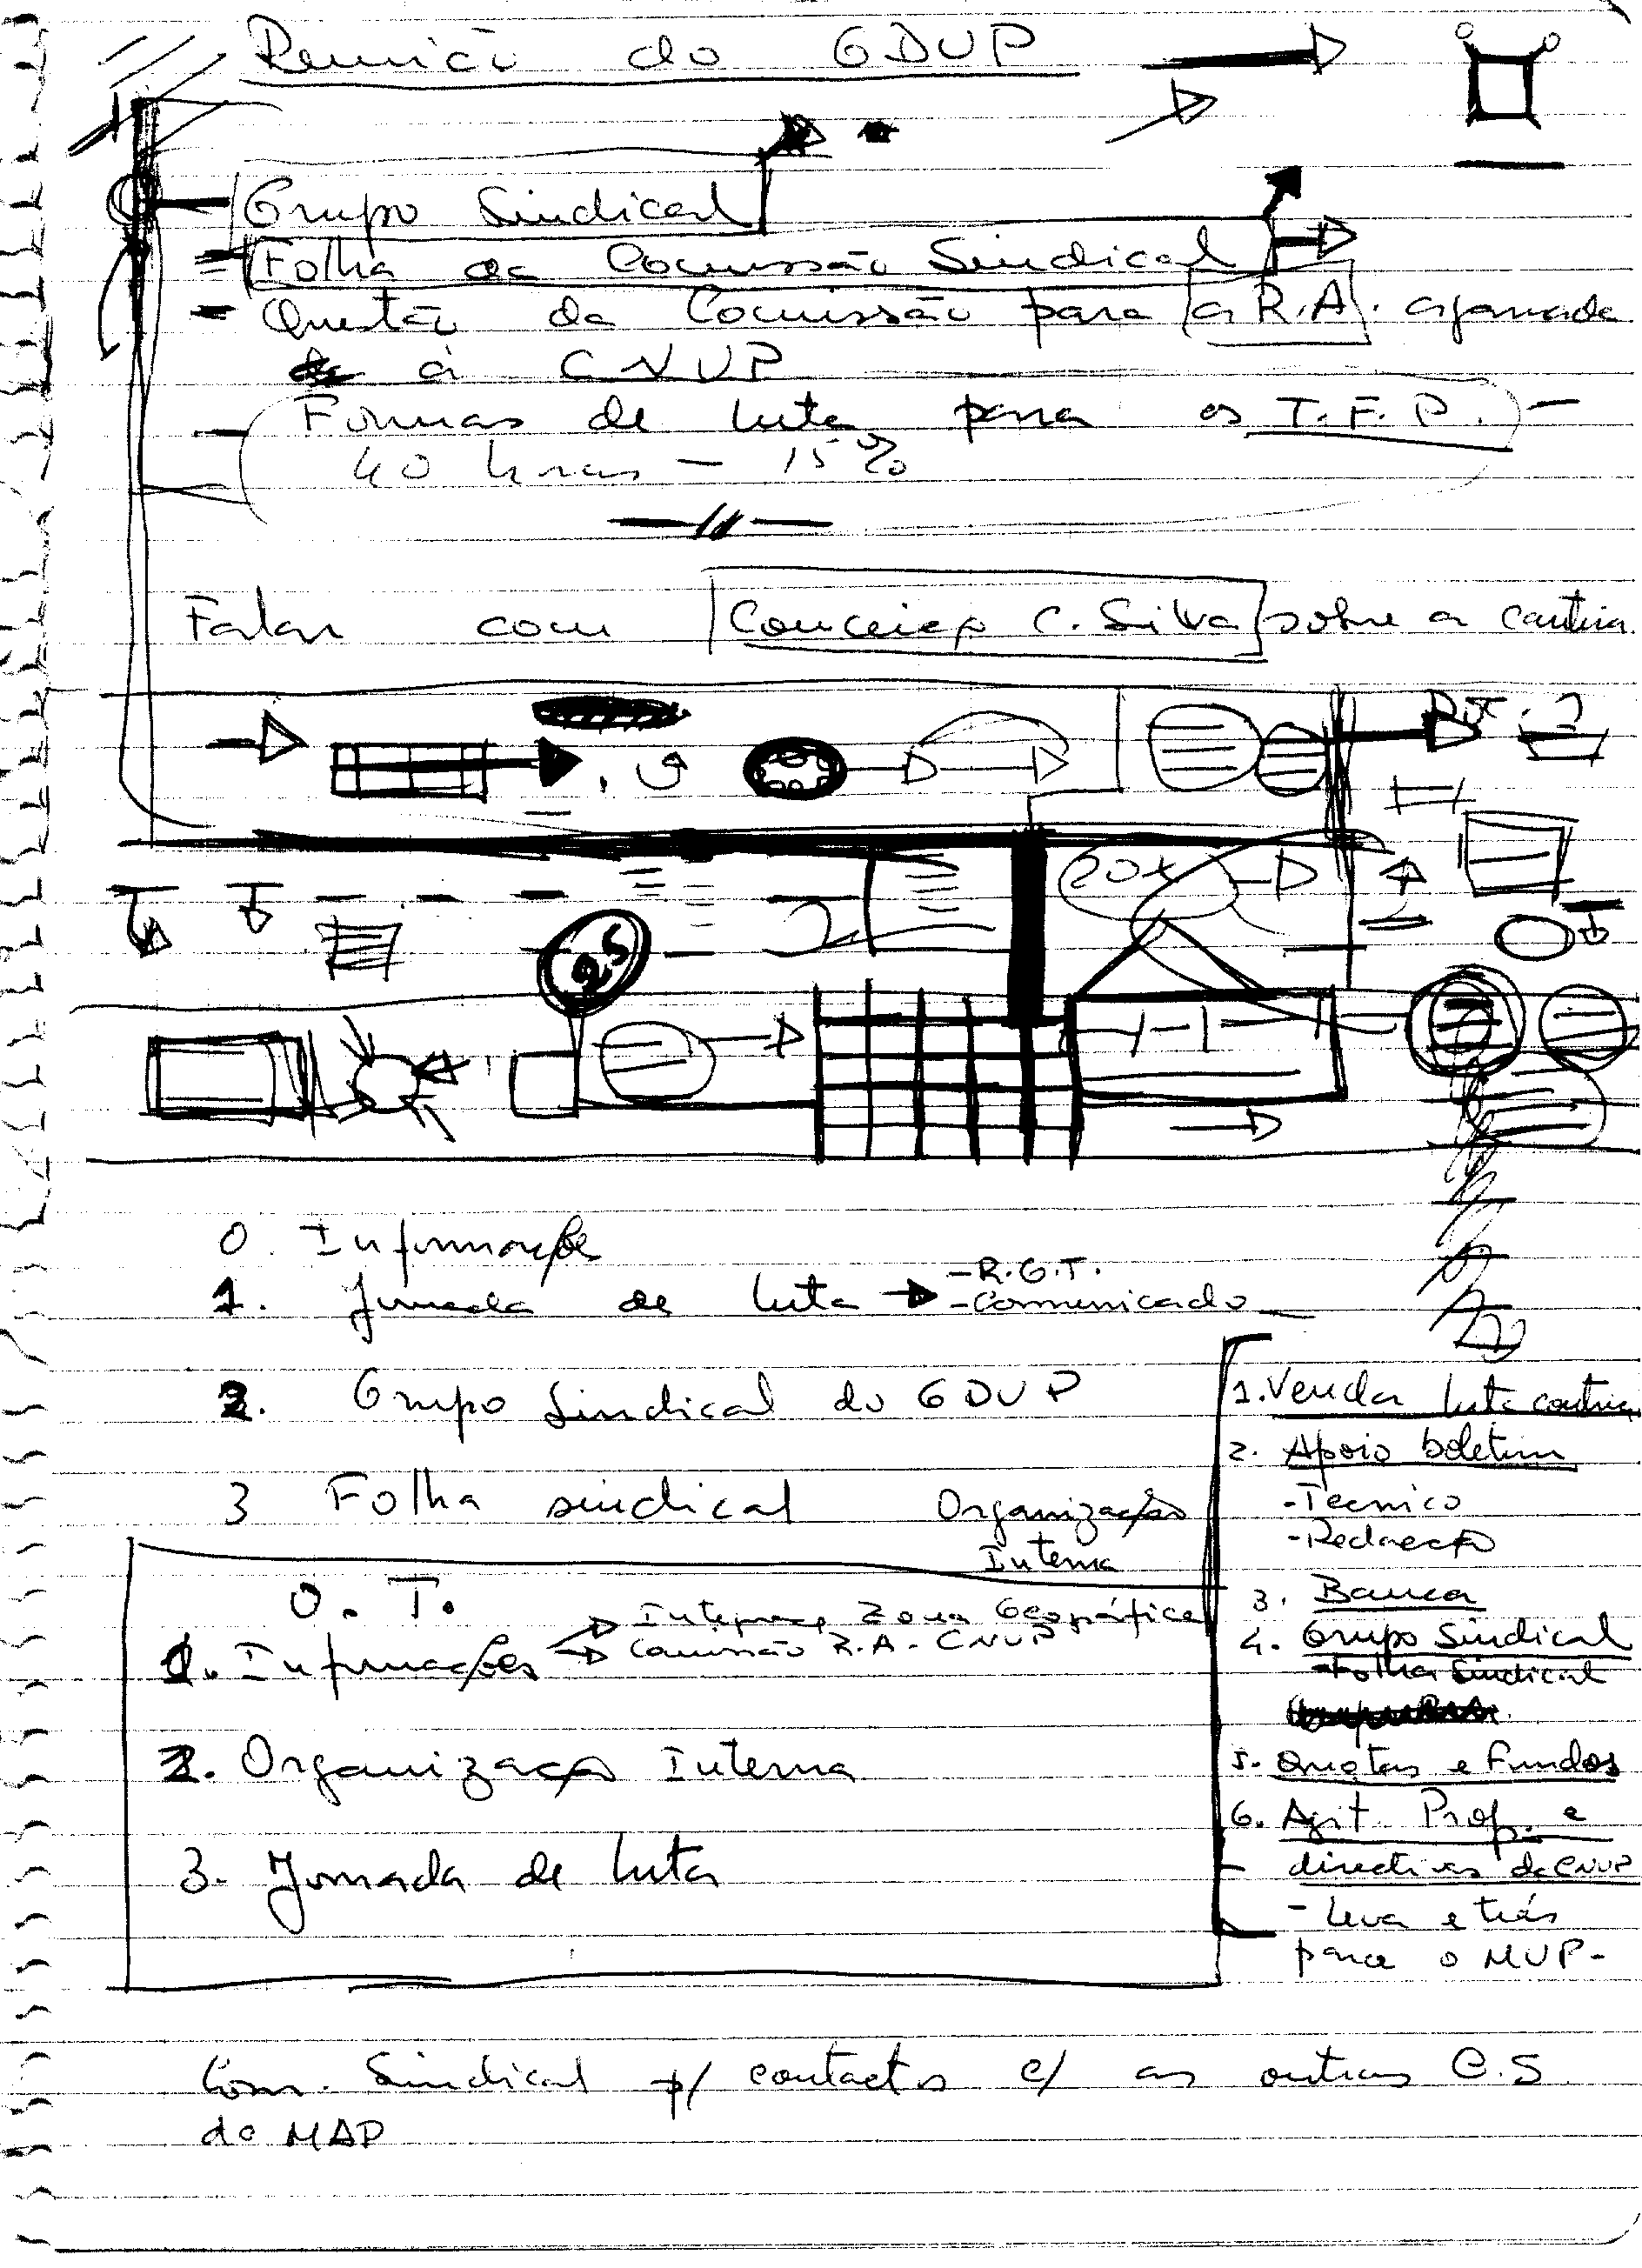 Reunião do GDUP
- Grupo Sindical
= Folha da Comissão Sindical
- Questão da Comissão para a R.A.
à CNUP
- Formas de luta para os T.F.P. -
40 horas - 15%
Falar com Conceição C. Silva sobre a cantina
20x
0. Informações
1. Jornada de luta → - R.G.T.
- Comunicado
2. Grupo Sindical do GDUP
3 Folha sindical
Organização
Interna
O. T.
1. Informações → Zona Geográfica
→ Comissão R.A. - CNUP
2. Organização Interna
3. Jornada de luta
1. Vender luta
2. Apoio boletim
- Tecnico
- Redacção
3. Banca
4. Grupo Sindical
- Folha Sindical
5. Quotas e Fundos
6. Agit. Prop. e
directivas da CNUP
- Leva e trás
para o MUP -
Com. Sindical p/ contactos c/ as outras C.S.
do MAP